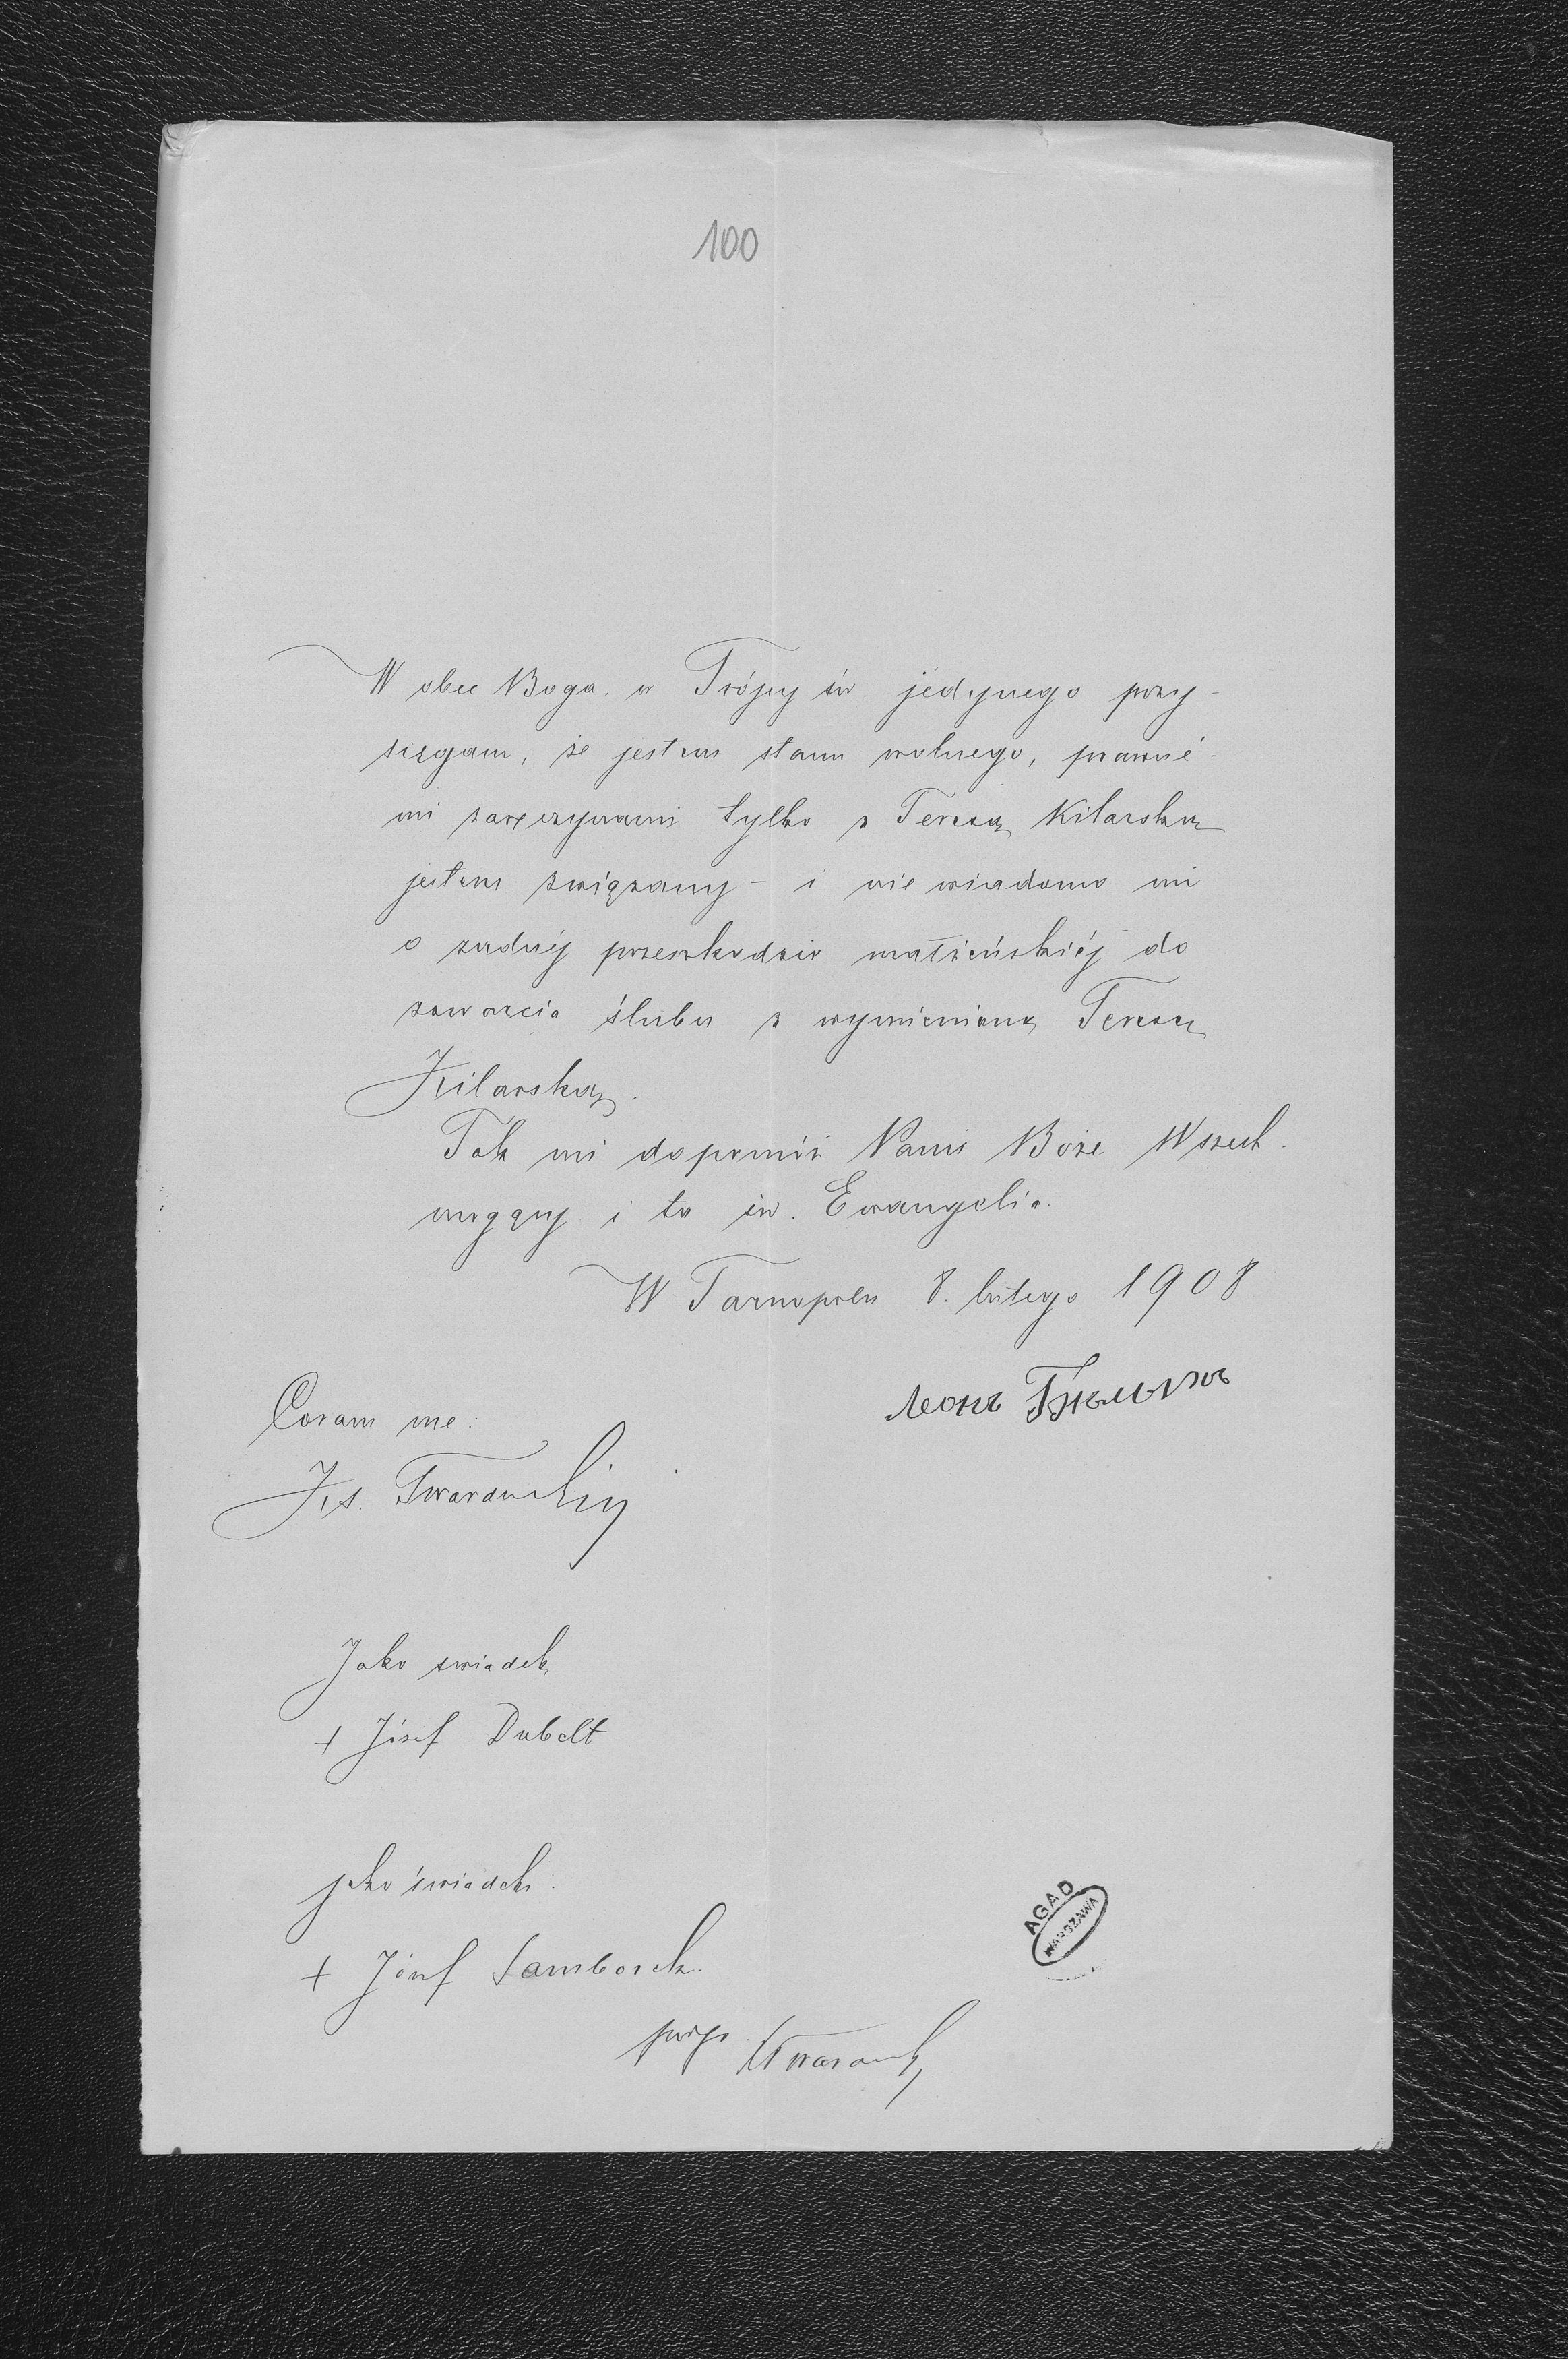 100
W obec Boga w Trójcy św. jedynego przy-
sięgam, że jestem stanu wolnego, prawne-
mi zaręczynami tylko z Teresą Kilarską
jestem związany - i nie wiadomo mi
o żadnéj przeszkodzie małżeńskiéj do
zawarcia ślubu z wymienioną Teresą
Kilarską.
Tak mi dopomóż Panie Boże Wszech-
mogący i ta św. Ewangelia.
W Tarnopolu 8. lutego 1908
Леонъ
Coram me:
Ks. Twardowski
Jako świadek
+ Józef Dubelt
jako świadek
+ Józef Samborsk
AGAD
WARSZAWA